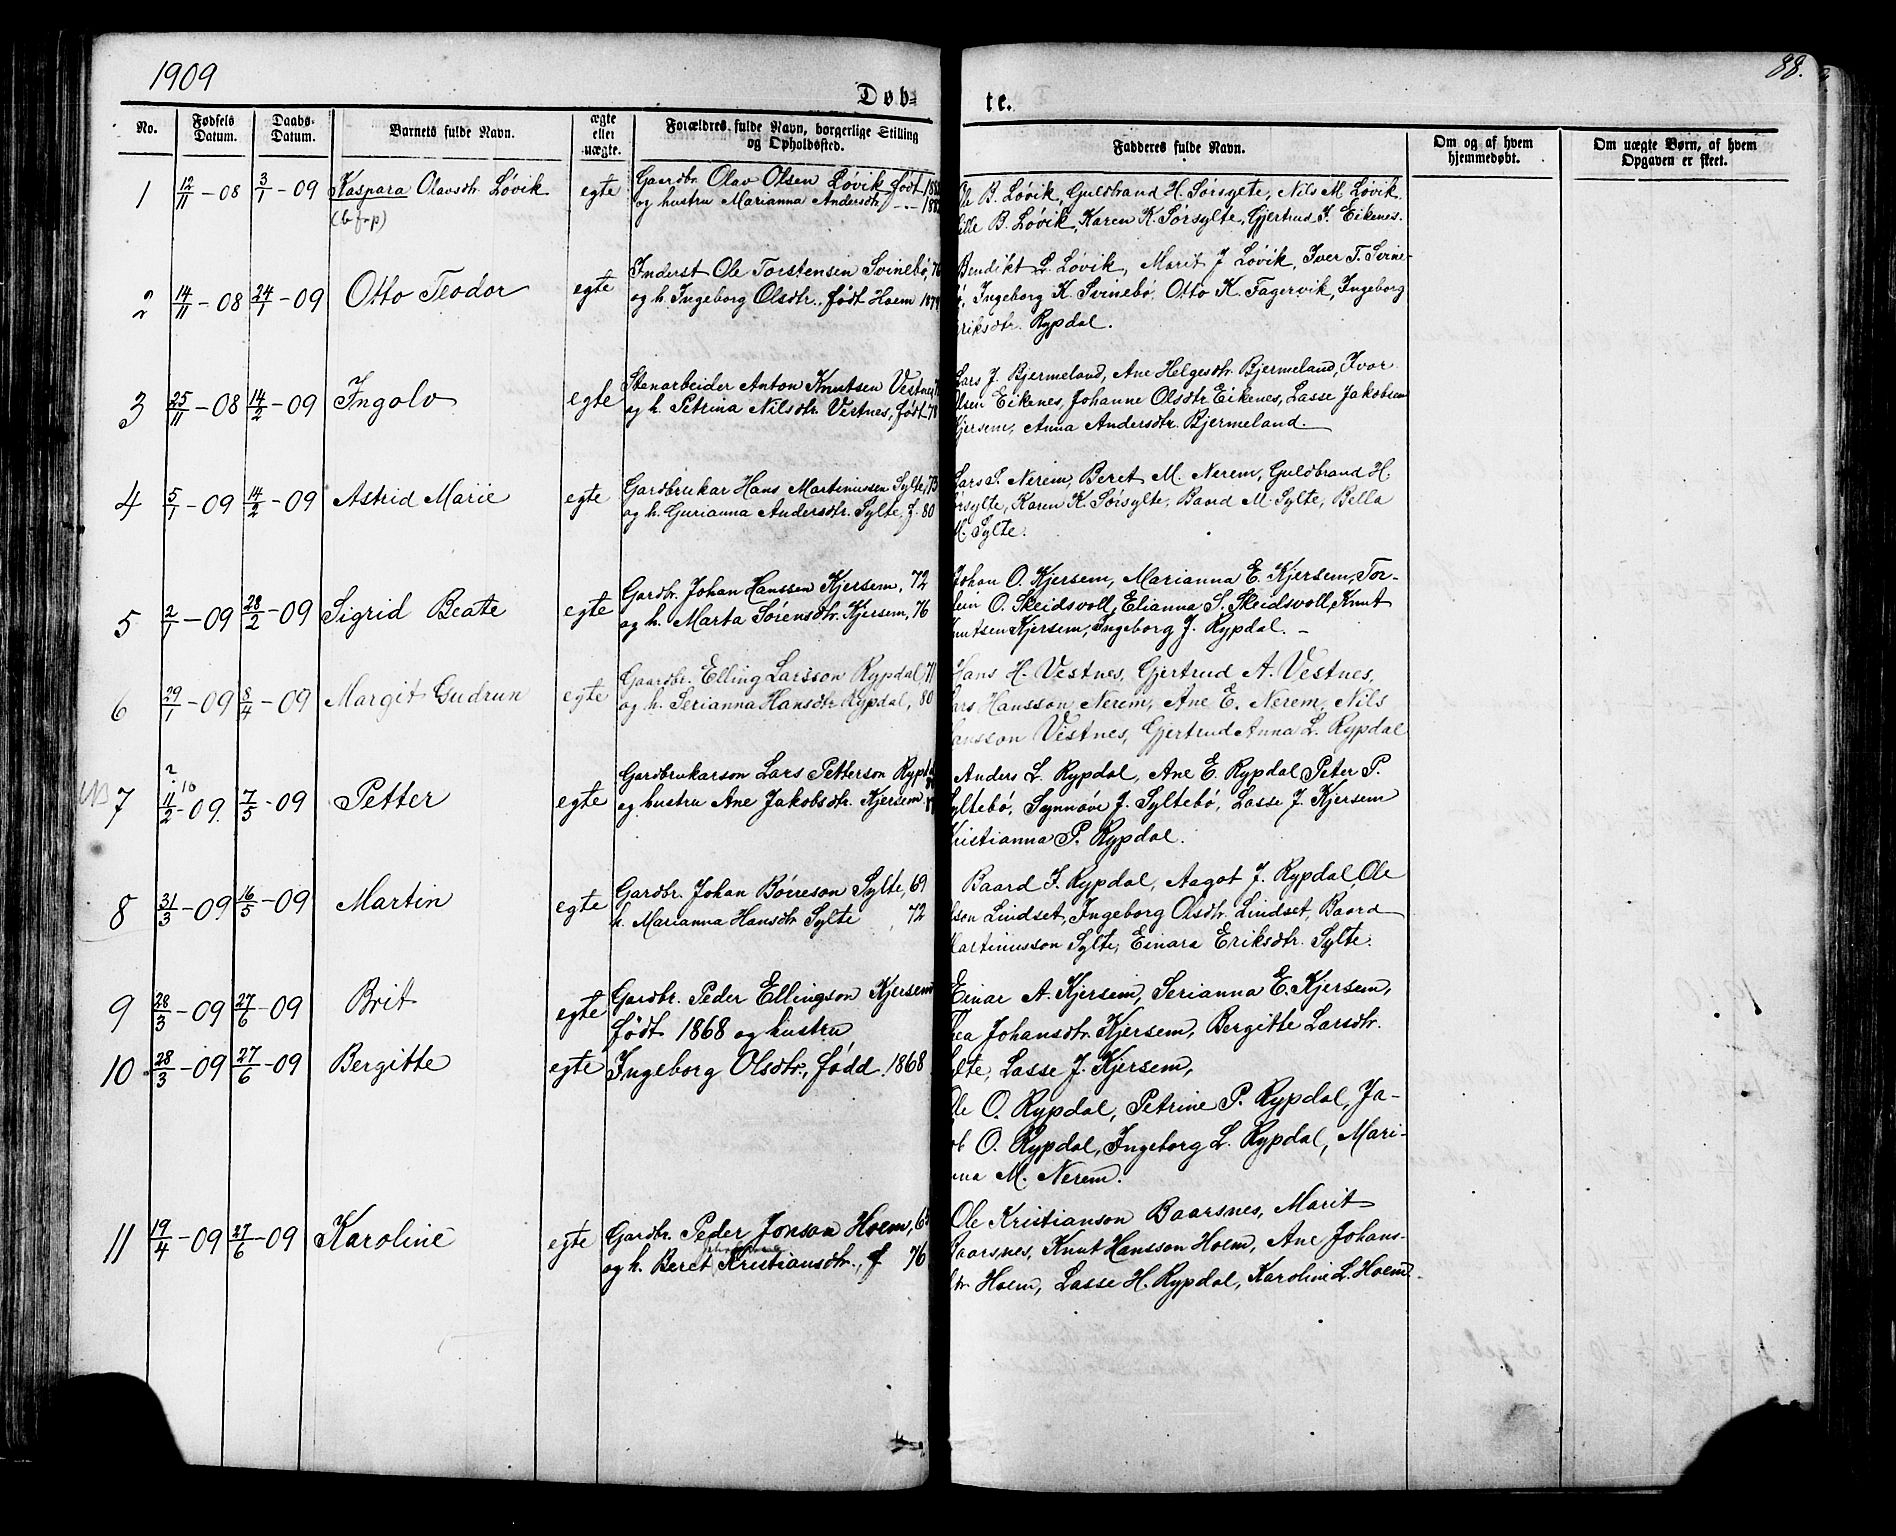 1909
88.
Døb-
te.
No.
Fødsels Datum.
Daabs-Datum.
Barnets fulde Navn.
ægte eller uægte.
Forældres fulde Navn, borgerlige Stilling og Opholdssted.
Fadderes fulde Navn.
Om og af hvem hjemmedøbt.
Om uægte Børn, af hvem Opgaven er skeet.
1 12/11-08 3/1-09 Kaspara Olavsdtr Løvik egte Gaardbr. Olav Olsen Løvik født
(b f p) og hustru Marianna Andersdtr
B. Løvik, Guldbrand H. Sørsylte, Nils M. Løvik
B. Løvik, Karen K. Sørsylte, Gjertrud I. Eikenes.
2 14/11-08 24/1-09 Otto Teodor egte Inderst Ole Torstensen Svinebø, 76
og h. Ingeborg Olsdtr., født Hoem 1879
Bendikt L. Løvik, Marit J. Løvik, Iver T. Svine-
Ingeborg K. Svinebø, Otto K. Fagervik, Ingeborg
riksdtr. Rypdal.
3 25/11-08 14/2-09 Ingolv egte Stenarbeider Anton Knutsen Vestnes
og h. Petrina Nilsdtr. Vestnes, født 78
Lars J. Bjermeland, Ane Helgesdtr Bjermeland, Ivar
lsen Eikenes, Johanne Olsdtr. Eikenes, Lasse Jakobsen
Kjersem, Anna Andersdtr. Bjermeland.
4 5/1-09 14/2-09 Astrid Marie egte Gardbrukar Hans Martinusen Sylte, 73
og h. Gurianna Andersdtr. Sylte, f. 80
Lars S. Nerem, Beret M. Nerem, Guldbrand H.
ørsylte, Karen K. Sørsylte, Baard M. Sylte, Bella
M. Sylte.
5 2/1-09 28/2-09 Sigrid Beate egte Gardbr. Johan Hanssen Kjersem, 72
og h. Marta Sørensdtr. Kjersem, 76
Johan O. Kjersem, Marianna E. Kjersem, Tor-
lein O. Skeidsvoll, Elianna S. Skeidsvoll, Knut
nutsen Kjersem, Ingeborg J. Rypdal. -
6 29/1-09 8/4-09 Margit Gudrun egte Gaardbr. Elling Larsson Rypdal, 71
og h. Serianna Hansdtr Rypdal, 80
Hans H. Vestnes, Gjertrud A. Vestnes,
ars Hansson Nerem, Ane E. Nerem, Nils
ansson Vestnes, Gjertrud Anna L. Rypdal
NB 7 11/2-09. ? 10 7/5-09 Petter egte Gardbrukarson Lars Petterson Rypdal
og hustru Ane Jakobsdtr. Kjersem
Anders L. Rypdal, Ane E. Rypdal, Peter P.
yltebø, Synnøve J. Syltebø, Lasse J. Kjersem
Kristianna P. Rypdal.
8 31/3-09 16/5-09 Martin egte Gardbr. Johan Børreson Sylte, 69
h. Marianna Hansdtr Sylte, 72
Baard J. Rypdal, Aagot J. Rypdal, Ole
lson Lindset, Ingeborg Olsdtr. Lindset, Baard
Martinusson Sylte, Einara Eriksdtr. Sylte.
9 28/3-09 27/6-09 Brit egte Gardbr. Peder Ellingson Kjersem
født 1868 og hustru
10 28/3-09 27/6-09 Bergitte egte Ingeborg Olsdtr., fødd 1868
Einar A. Kjersem, Serianna E. Kjersem,
Thea Johansdtr. Kjersem, Bergitte Larsdtr.
ylte, Lasse J. Kjersem,
Ole O. Rypdal, Petrine P. Rypdal, Ja-
ob O. Rypdal, Ingeborg L. Rypdal, Mari-
nna M. Nerem.
11 19/4-09 27/6-09 Karoline egte Gardbr. Peder Jonson Hoem, 65
og h. Beret Kristiansdtr., f 76
Ole Kristianson Baarsnes, Marit
Baarsnes, Knut Hansson Hoem, Ane Johans-
dtr Hoem, Lasse H. Rypdal, Karoline L. Hoem.